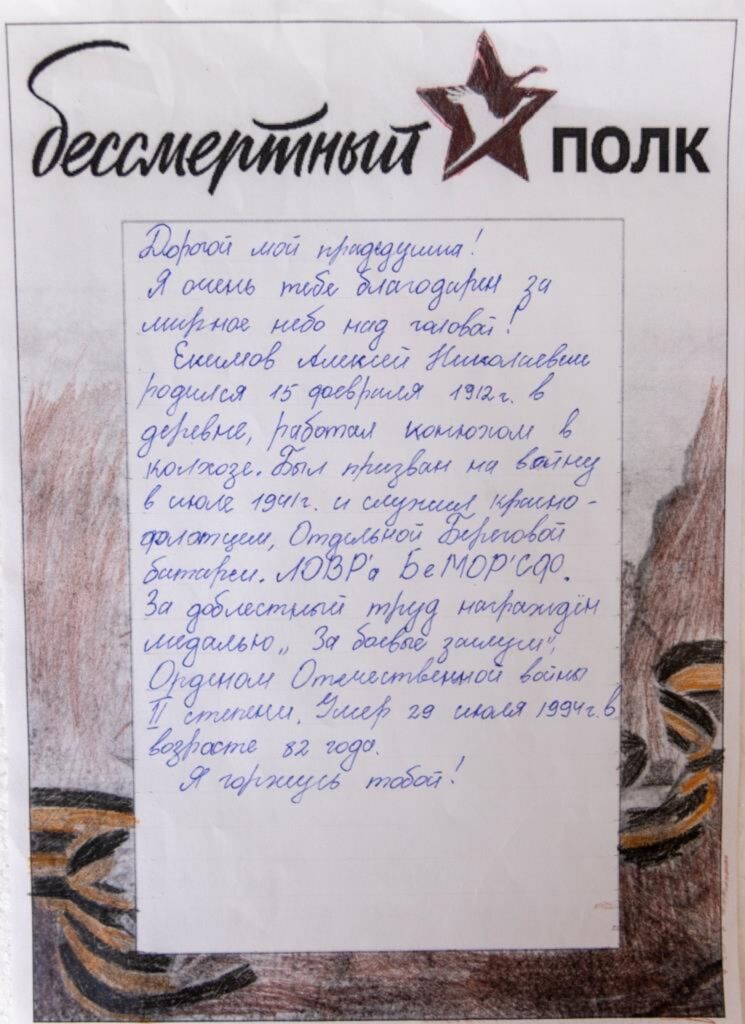 бессмертный полк
Дорогой мой прадедушка!
Я очень тебе благодарен за
мирное небо над головой!
Екимов Алексей Николаевич
родился 15 февраля 1912г. в
деревне, работал конюхом в
колхозе. Был призван на войну
в июле 1941г. и служил красно-
флотцем, Отдельной Береговой
батареи. ЛОВР'а БеМОР'СФ.
За доблестный труд награждён
медалью „ За боевые заслуги",
Орденом Отечественной войны
II степени. Умер 29 июля 1994г. в
возрасте 82 года.
Я горжусь тобой!